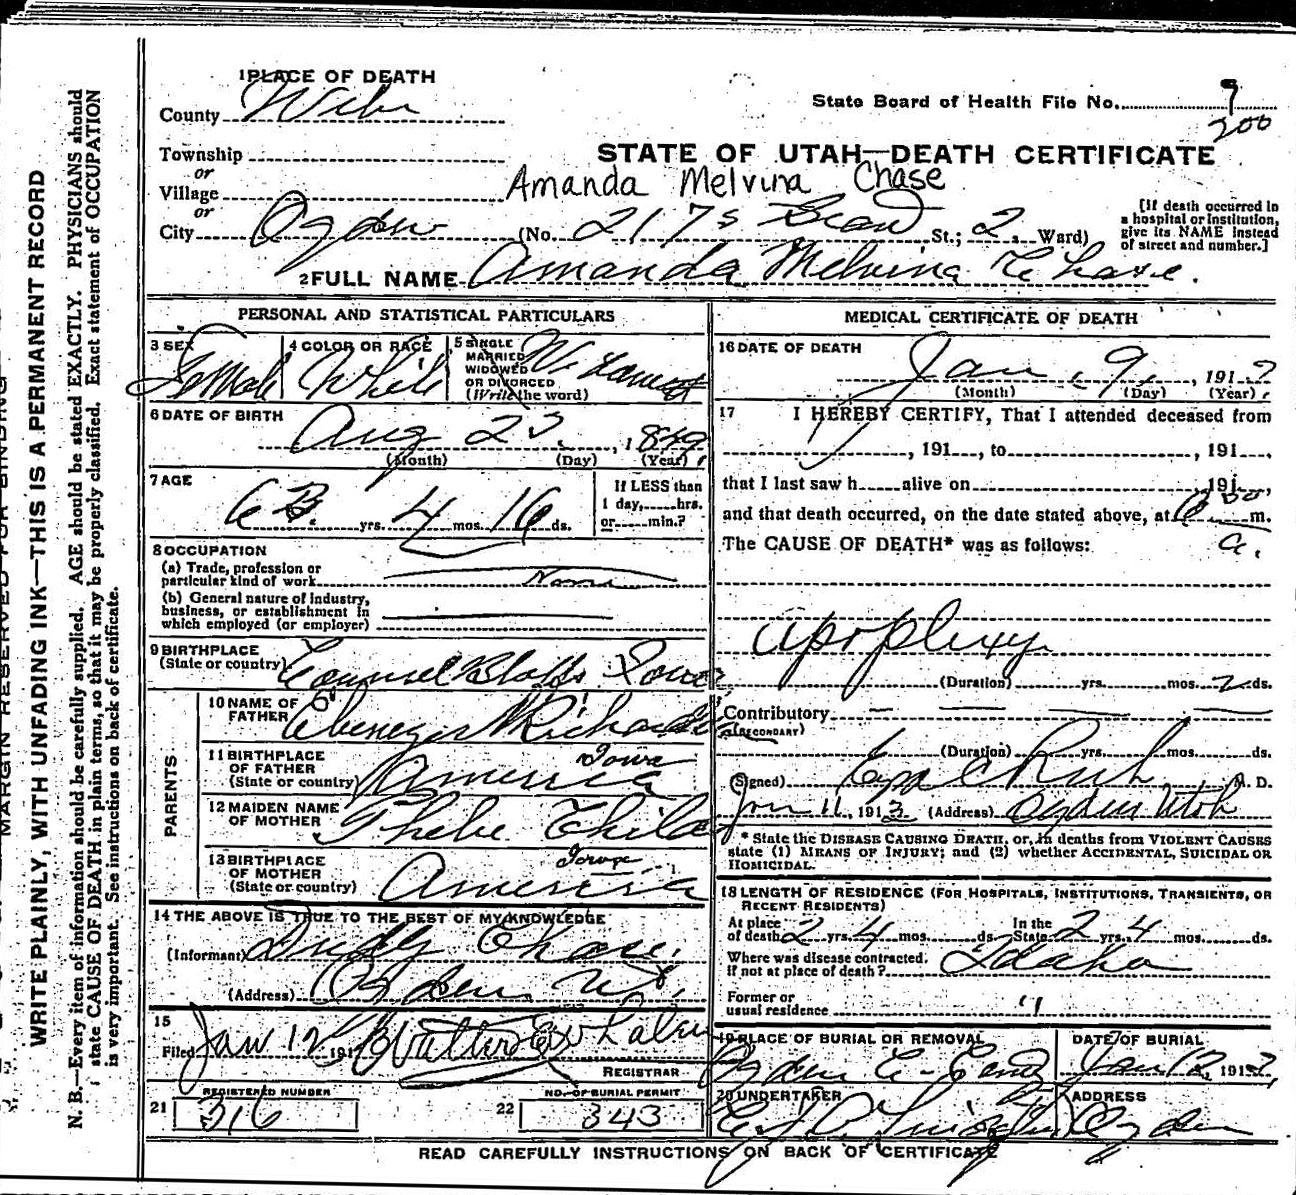 1 PLACE OF DEATH
County Weber
State Board of Health File No. 9
200
Township
or
STATE OF UTAH—DEATH CERTIFICATE
Village
or
Amanda Melvina Chase
City Ogden (No. 2175 St.; 2 Ward)
[If death occurred in
a hospital or institution,
give its NAME instead
of street and number.]
2 FULL NAME Amanda Melvina Chase.
MARGIN RESERVED FOR BINDING
WRITE PLAINLY, WITH UNFADING INK—THIS IS A PERMANENT RECORD
N. B.—Every item of information should be carefully supplied. AGE should be stated EXACTLY. PHYSICIANS should
state CAUSE OF DEATH in plain terms, so that it may be properly classified. Exact statement of OCCUPATION
is very important. See instructions on back of certificate.
PERSONAL AND STATISTICAL PARTICULARS
3 SEX Female
4 COLOR OR RACE White
5 SINGLE
MARRIED
WIDOWED
OR DIVORCED
(Write the word)
6 DATE OF BIRTH
Aug 23, 1849
(Month) (Day) (Year)
7 AGE
63 yrs. 4 mos. 16 ds.
If LESS than
1 day, hrs.
or min.?
8 OCCUPATION
(a) Trade, profession or
particular kind of work None
(b) General nature of Industry,
business, or establishment in
which employed (or employer)
9 BIRTHPLACE
(State or country) Counsel Bluffs Iowa
PARENTS
10 NAME OF
FATHER Ebenezer
11 BIRTHPLACE
OF FATHER Iowa
(State or country) America
12 MAIDEN NAME
OF MOTHER Phebe
13 BIRTHPLACE
OF MOTHER Iowa
(State or country) America
14 THE ABOVE IS TRUE TO THE BEST OF MY KNOWLEDGE
(Informant) Dudly Chase.
(Address) Ogden Ut.
15
Filed Jan 12 191
REGISTRAR
REGISTERED NUMBER
21 316
NO. OF BURIAL PERMIT
22 343
MEDICAL CERTIFICATE OF DEATH
16 DATE OF DEATH
Jan. 9, 1913
(Month) (Day) (Year)
17 I HEREBY CERTIFY, That I attended deceased from
, 191 , to , 191 ,
that I last saw h alive on 191 ,
and that death occurred, on the date stated above, at m.
a.
The CAUSE OF DEATH* was as follows:
apoplexy
(Duration) yrs. mos. 2 ds.
Contributory
(SECONDARY)
(Duration) yrs. mos. ds.
(Signed) Rich M. D.
Jan 11, 1913 (Address) Ogden Utah
* State the DISEASE CAUSING DEATH, or, in deaths from VIOLENT CAUSES
state (1) MEANS OF INJURY; and (2) whether ACCIDENTAL, SUICIDAL OR
HOMICIDAL.
18 LENGTH OF RESIDENCE (FOR HOSPITALS, INSTITUTIONS, TRANSIENTS, OR
RECENT RESIDENTS)
At place
of death 2 yrs. 4 mos. ds. In the State 2 yrs. 4 mos. ds.
Where was disease contracted,
If not at place of death? Idaho
Former or
usual residence "
19 PLACE OF BURIAL OR REMOVAL
Ogden
DATE OF BURIAL
Jan 12, 1913
20 UNDERTAKER
ADDRESS
Ogden
READ CAREFULLY INSTRUCTIONS ON BACK OF CERTIFICATE